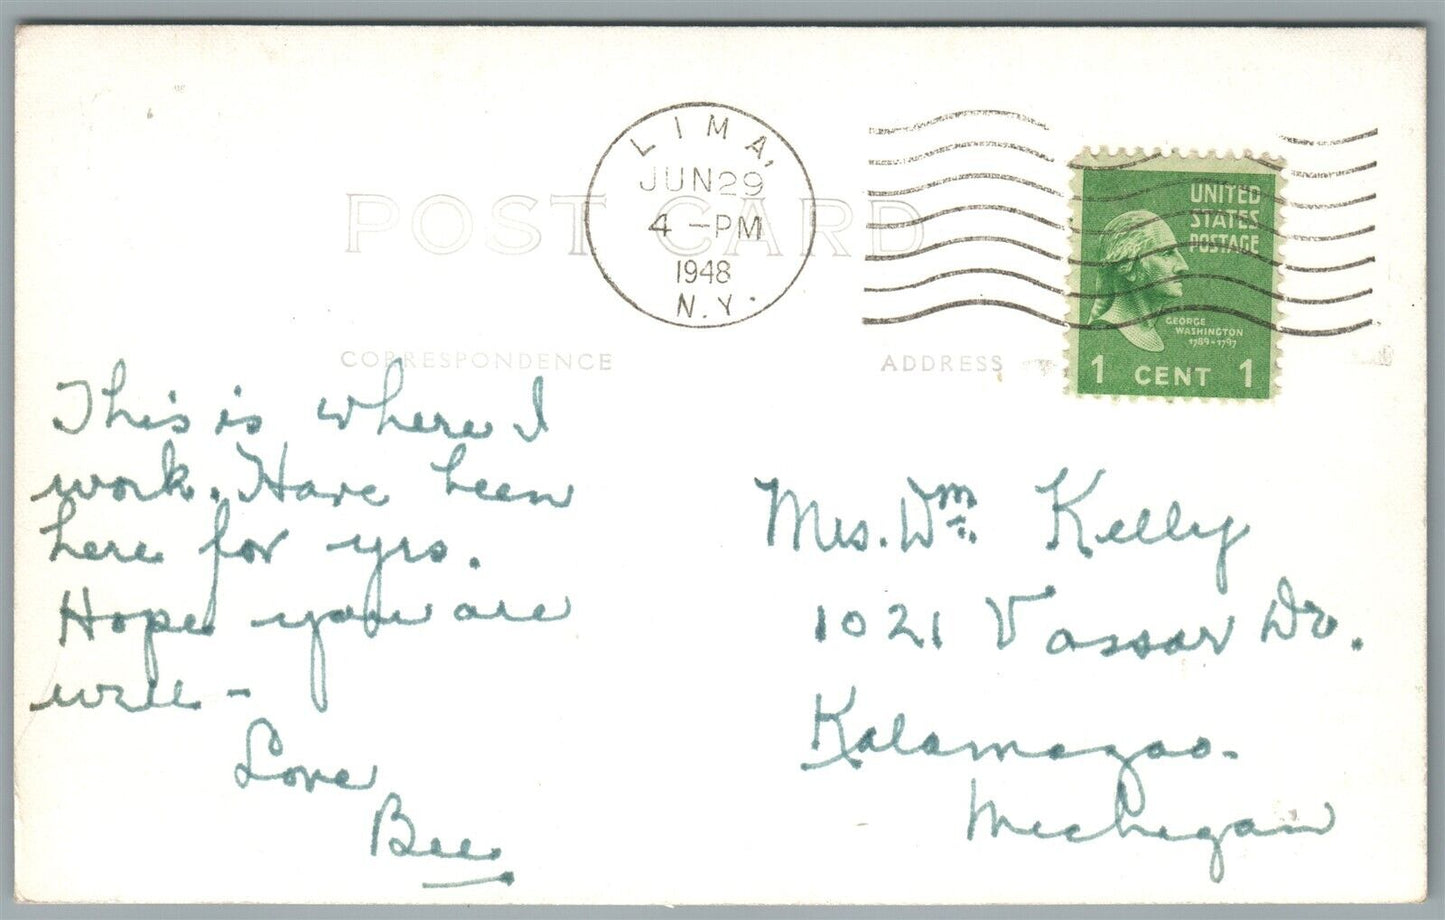 POST CARD
LIMA,
JUN 29
4 - PM
1948
N.Y.
UNITED
STATES
POSTAGE
GEORGE
WASHINGTON
1789-1797
1 CENT 1
CORRESPONDENCE
ADDRESS
This is where I
work. Have been
here for yrs.
Hope you are
well -
Love
Bee
Mrs. Wm. Kelly
1021 Vassar Dr.
Kalamazoo -
Michigan